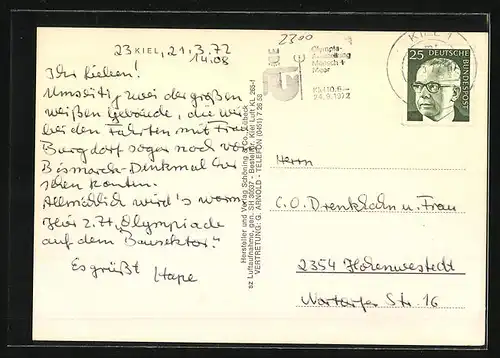 23 KIEL, 21.3.72
14.08
Ihr Lieben!
Umseitig zwei der großen
weißen Gebäude, die wir
bei den Fahrten mit Frau
Burgdorf sogar noch vom
Bismarck-Denkmal aus
sehen konnten.
Allmählich wird's warm
Hier z.Zt. „Olympiade
auf dem Bausektor".
Es grüßt Hape
Hersteller und Verlag Schöning & Co., Lübeck
gen. SH 3007 - Bestell-Nr. Kiel Luft KL 265
VERTRETUNG: G. ARNOLD - TELEFON (0451) 7 26 58
2300
KIEL 1
Olympia-
Ausstellung
Mensch +
Meer
Kiel 10.6.-
24.9.1972
25 DEUTSCHE
BUNDESPOST
Herrn
C.O. Drenkhahn u. Frau
2354 Hohenwestedt
Nortorfer Str. 16